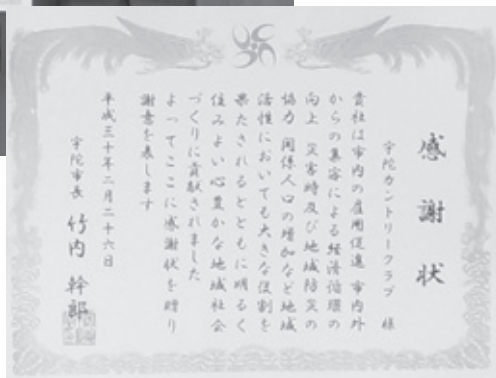 感謝状
宇陀カントリークラブ 様
貴社は市内の雇用促進 市内外
からの集客による経済循環の
向上 災害時及び地域防災の
協力 関係人口の増加など地域
活性においても大きな役割を
果たされるとともに明るく
住みよい心豊かな地域社会
づくりに貢献されました
よってここに感謝状を贈り
謝意を表します
平成三十年二月二十六日
宇陀市長 竹内 幹郎